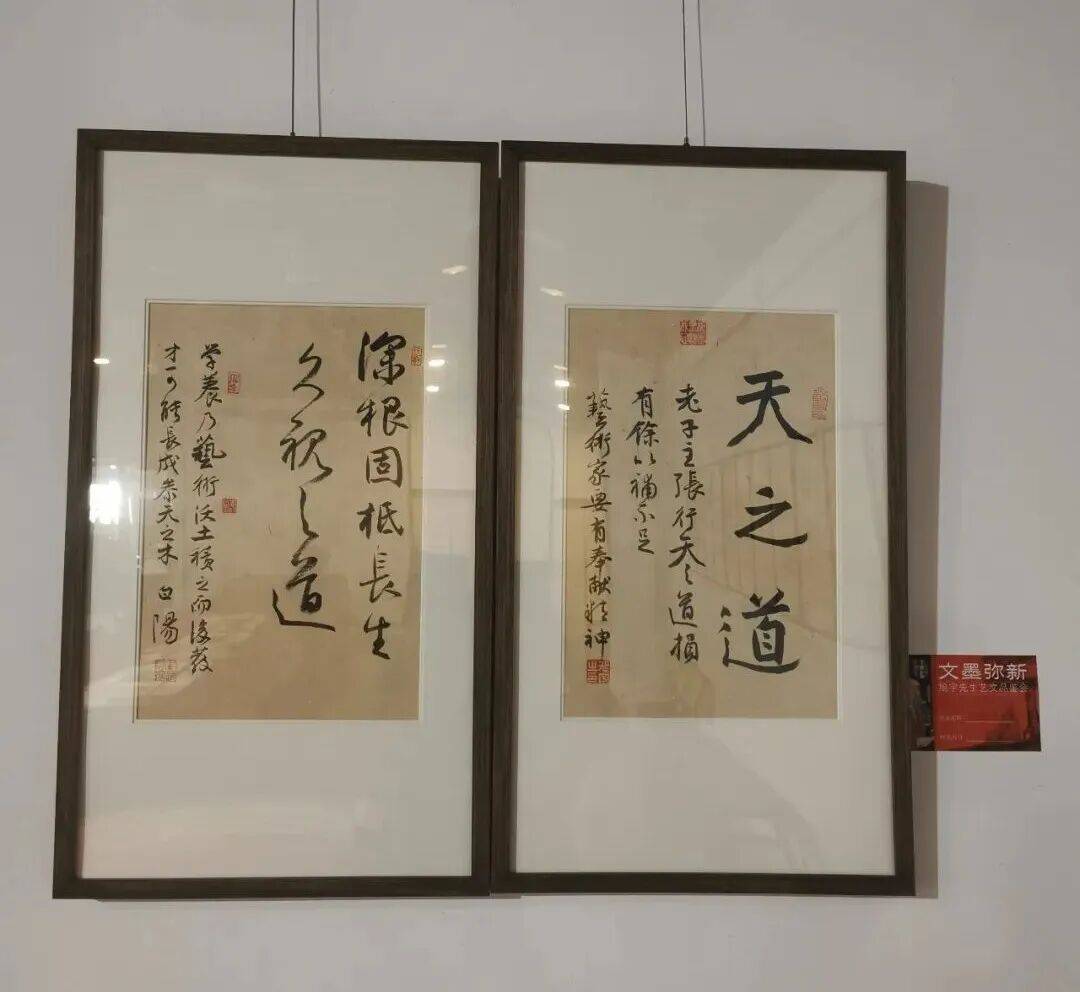 天之道
老子主張行天之道損
有餘以補不足
藝術家要有奉献精神
深根固柢長生
久視之道
学養乃藝術沃土積之而後發
才可能長成参天之木 白陽
文墨弥新
旭宇先生艺文品鉴会